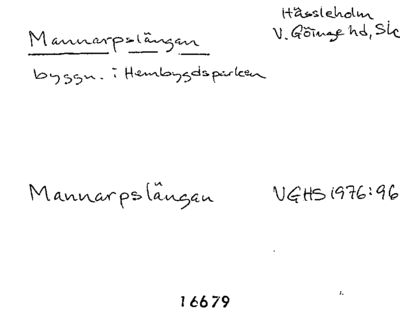 Hässleholm
Mannarpslängan V. Göinge hd, Sk
byggn. i Hembygdsparken
Mannarpslängan VGHS 1976:96
16679